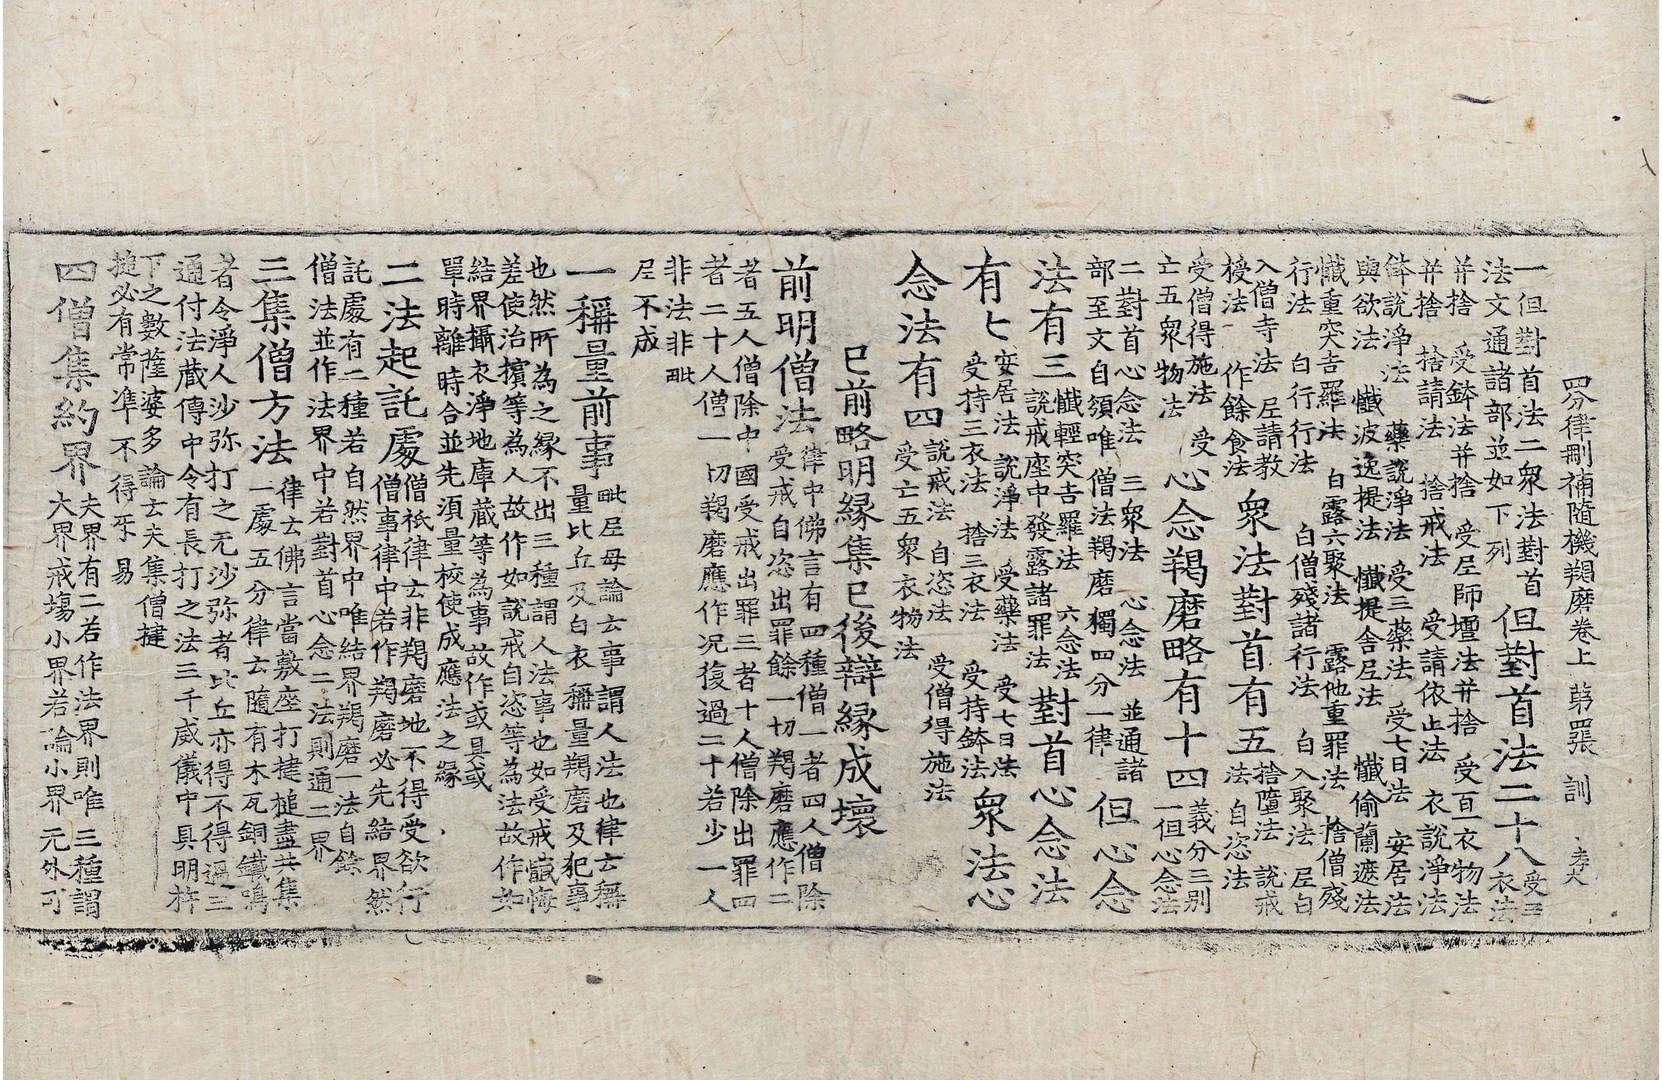 四分律刪補隨機羯磨卷上 第四張 訓
一但對首法二衆法對首
法文通諸部並如下列
但對首法二十八
受三
衣法
并捨 受鉢法并捨 受尼師壇法并捨 受百一衣物法
并捨 捨請法 捨戒法 受請依止法 衣說淨法
鉢說淨法 藥說淨法 受三藥法 受七日法 安居法
與欲法 懺波逸提法 懺提舍尼法 懺偷蘭遮法
懺重突吉羅法 白露六聚法 露他重罪法 捨僧殘
行法 白行行法 白僧殘諸行法 白入聚法 尼白
入僧寺法 尼請教
授法 作餘食法
衆法對首有五
捨墮法 說戒
法 自恣法
受僧得施法 受
亡五衆物法
心念羯磨略有十四
義分三別
一但心念法
二對首心念法 三衆法 心念法 並通諸
部至文自須唯僧法羯磨獨四分一律
但心念
法有三
懺輕突吉羅法 六念法
說戒座中發露諸罪法
對首心念法
有七
安居法 說淨法 受藥法 受七日法
受持三衣法 捨三衣法 受持鉢法
衆法心
念法有四
說戒法 自恣法 受僧得施法
受亡五衆衣物法
已前略明緣集已後辯緣成壞
前明僧法
律中佛言有四種僧一者四人僧除
受戒自恣出罪餘一切羯磨應作二
者五人僧除中國受戒出罪三者十人僧除出罪四
者二十人僧一切羯磨應作況復過二十若少一人
非法非毗
尼不成
一稱量前事
毗尼母論云事謂人法也律云稱
量比丘及白衣稱量羯磨及犯事
也然所為之緣不出三種謂人法事也如受戒懺悔
差使治擯等為人故作如說戒自恣等為法故作如
結界攝衣淨地庫藏等為事故作或具或
單時離時合並先須量校使成應法之緣
二法起託處
僧祇律云非羯磨地不得受欲行
僧事律中若作羯磨必先結界然
託處有二種若自然界中唯結界羯磨一法自餘
僧法並作法界中若對首心念二法則通二界
三集僧方法
律云佛言當敷座打揵搥盡共集
一處五分律云隨有木瓦銅鐵鳴
者令淨人沙弥打之无沙弥者比丘亦得不得過三
通付法藏傳中令有長打之法三千威儀中具明杵
下之數薩婆多論云夫集僧揵
搥必有常准不得互易
四僧集約界
夫界有二若作法界則唯三種謂
大界戒場小界若論小界无外可